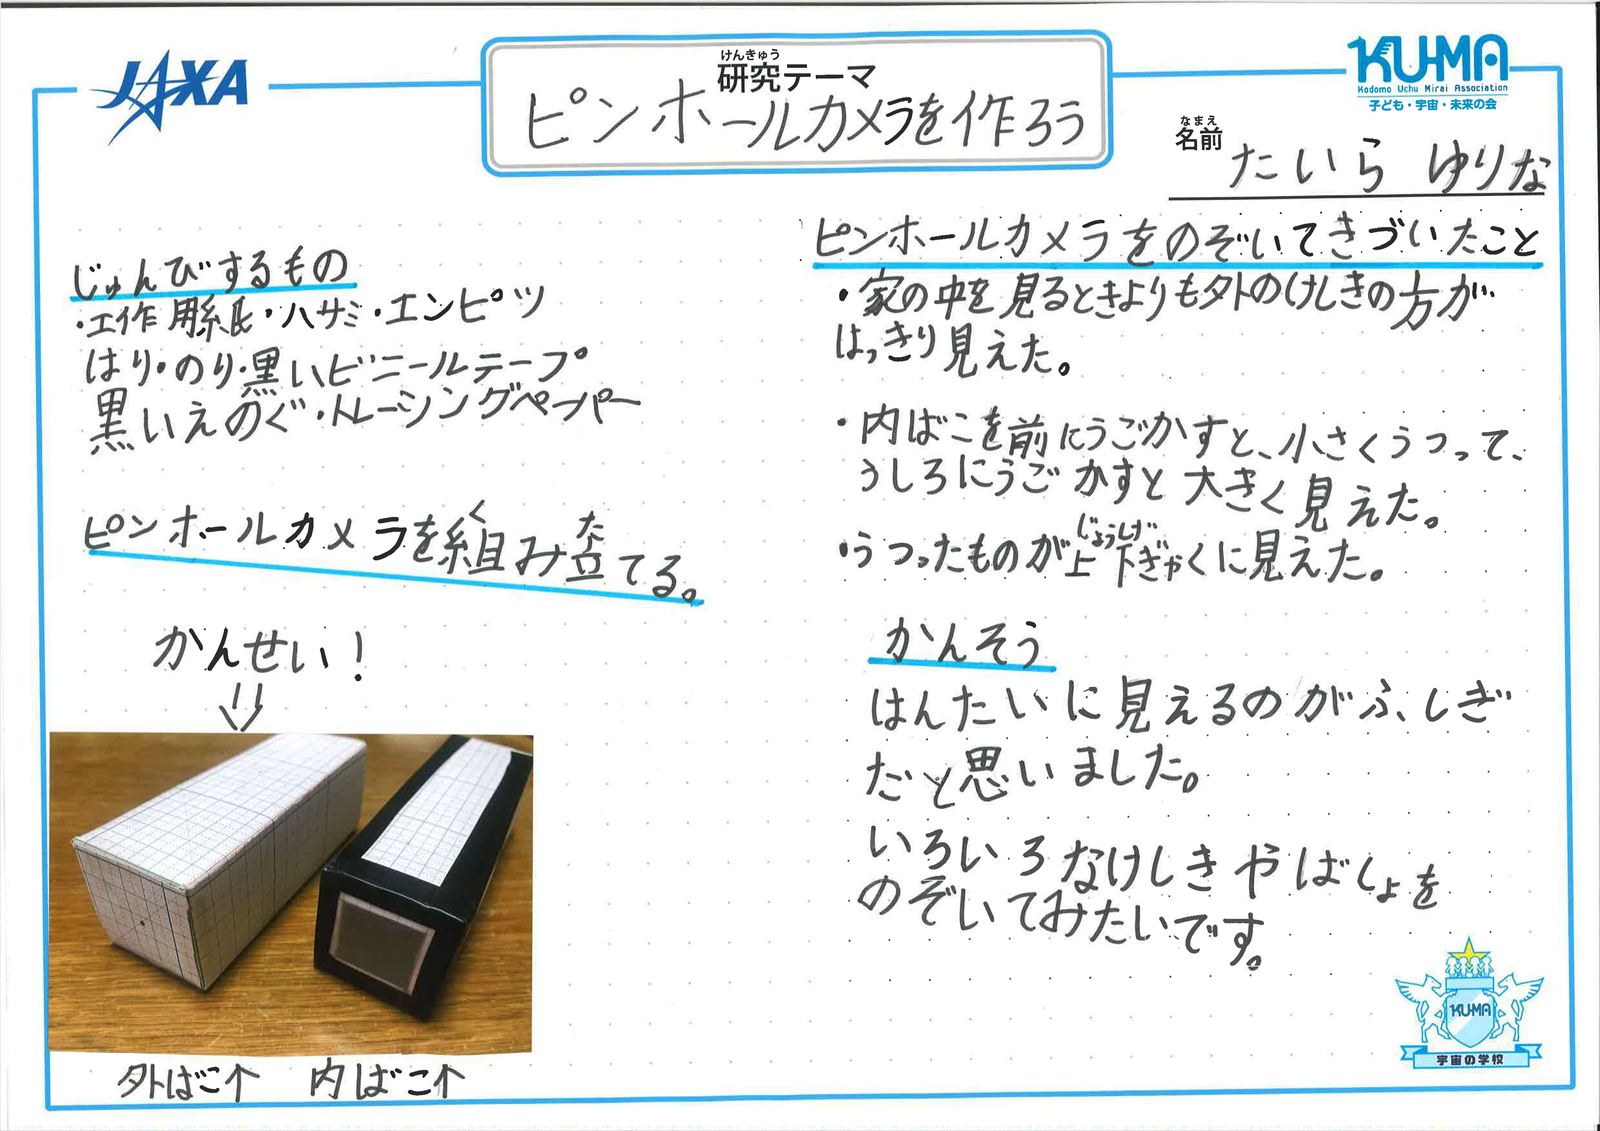 JAXA
けんきゅう
研究テーマ
ピンホールカメラを作ろう
KUMA
Kodomo Uchu Mirai Association
子ども・宇宙・未来の会
なまえ
名前
たいら ゆりな
じゅんびするもの
・工作用紙・ハサミ・エンピツ
はり・のり・黒いビニールテープ
黒いえのぐ・トレーシングペーパー
く た
ピンホールカメラを組み立てる。
かんせい!
⇓
外ばこ↑ 内ばこ↑
ピンホールカメラをのぞいてきづいたこと
・家の中を見るときよりも外のけしきの方が
はっきり見えた。
・内ばこを前にうごかすと、小さくうつって、
うしろにうごかすと大きく見えた。
じょうげ
・うつったものが上下ぎゃくに見えた。
かんそう
はんたいに見えるのがふしぎ
だと思いました。
いろいろなけしきやばしょを
のぞいてみたいです。
KUMA
宇宙の学校